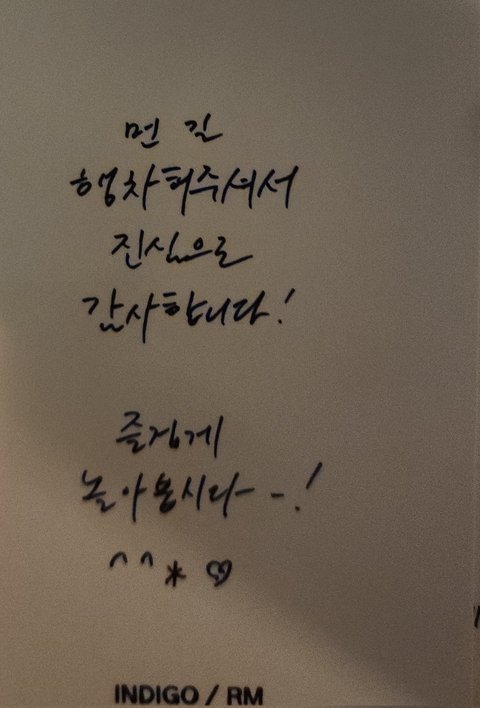 먼 길
행차해주셔서
진심으로
감사합니다!
즐겁게
놀아봅시다--!
^^* ♡
INDIGO / RM